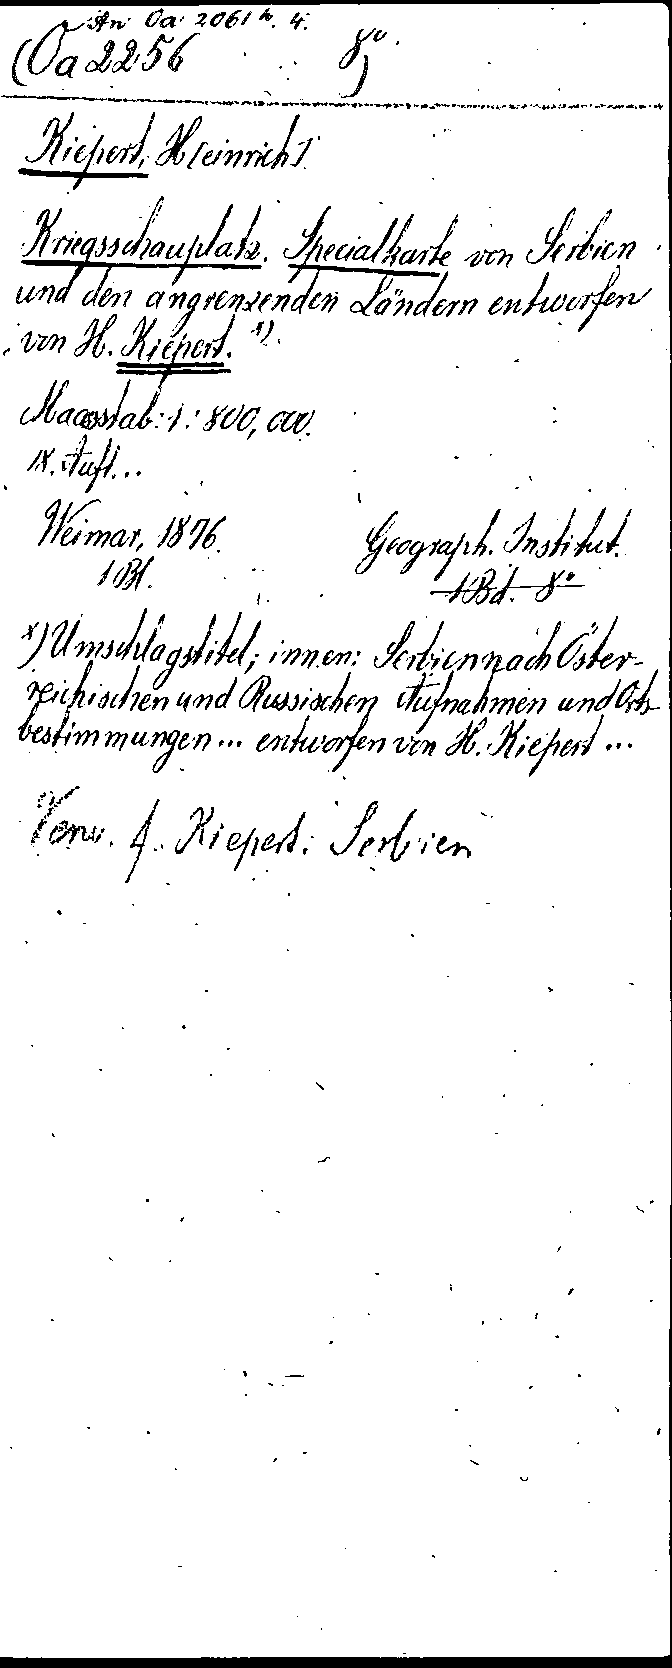 An Oa 2061 b. 4.
(Oa 2256 8°.)
Kiepert, H[einrich].
Kriegsschauplatz. Specialkarte von Serbien
und den angrenzenden Ländern entworfen
von H. Kiepert. x)
Maasstab: 1: 800,000.
IX. Aufl...
Weimar, 1876. Geograph. Institut.
1 Bl. 1 Bd. 8°
x) Umschlagstitel; innen: Serbien nach Öster-
reichischen und Russischen Aufnahmen und Orts-
bestimmungen ... entworfen von H. Kiepert ...
Verw. f. Kiepert: Serbien